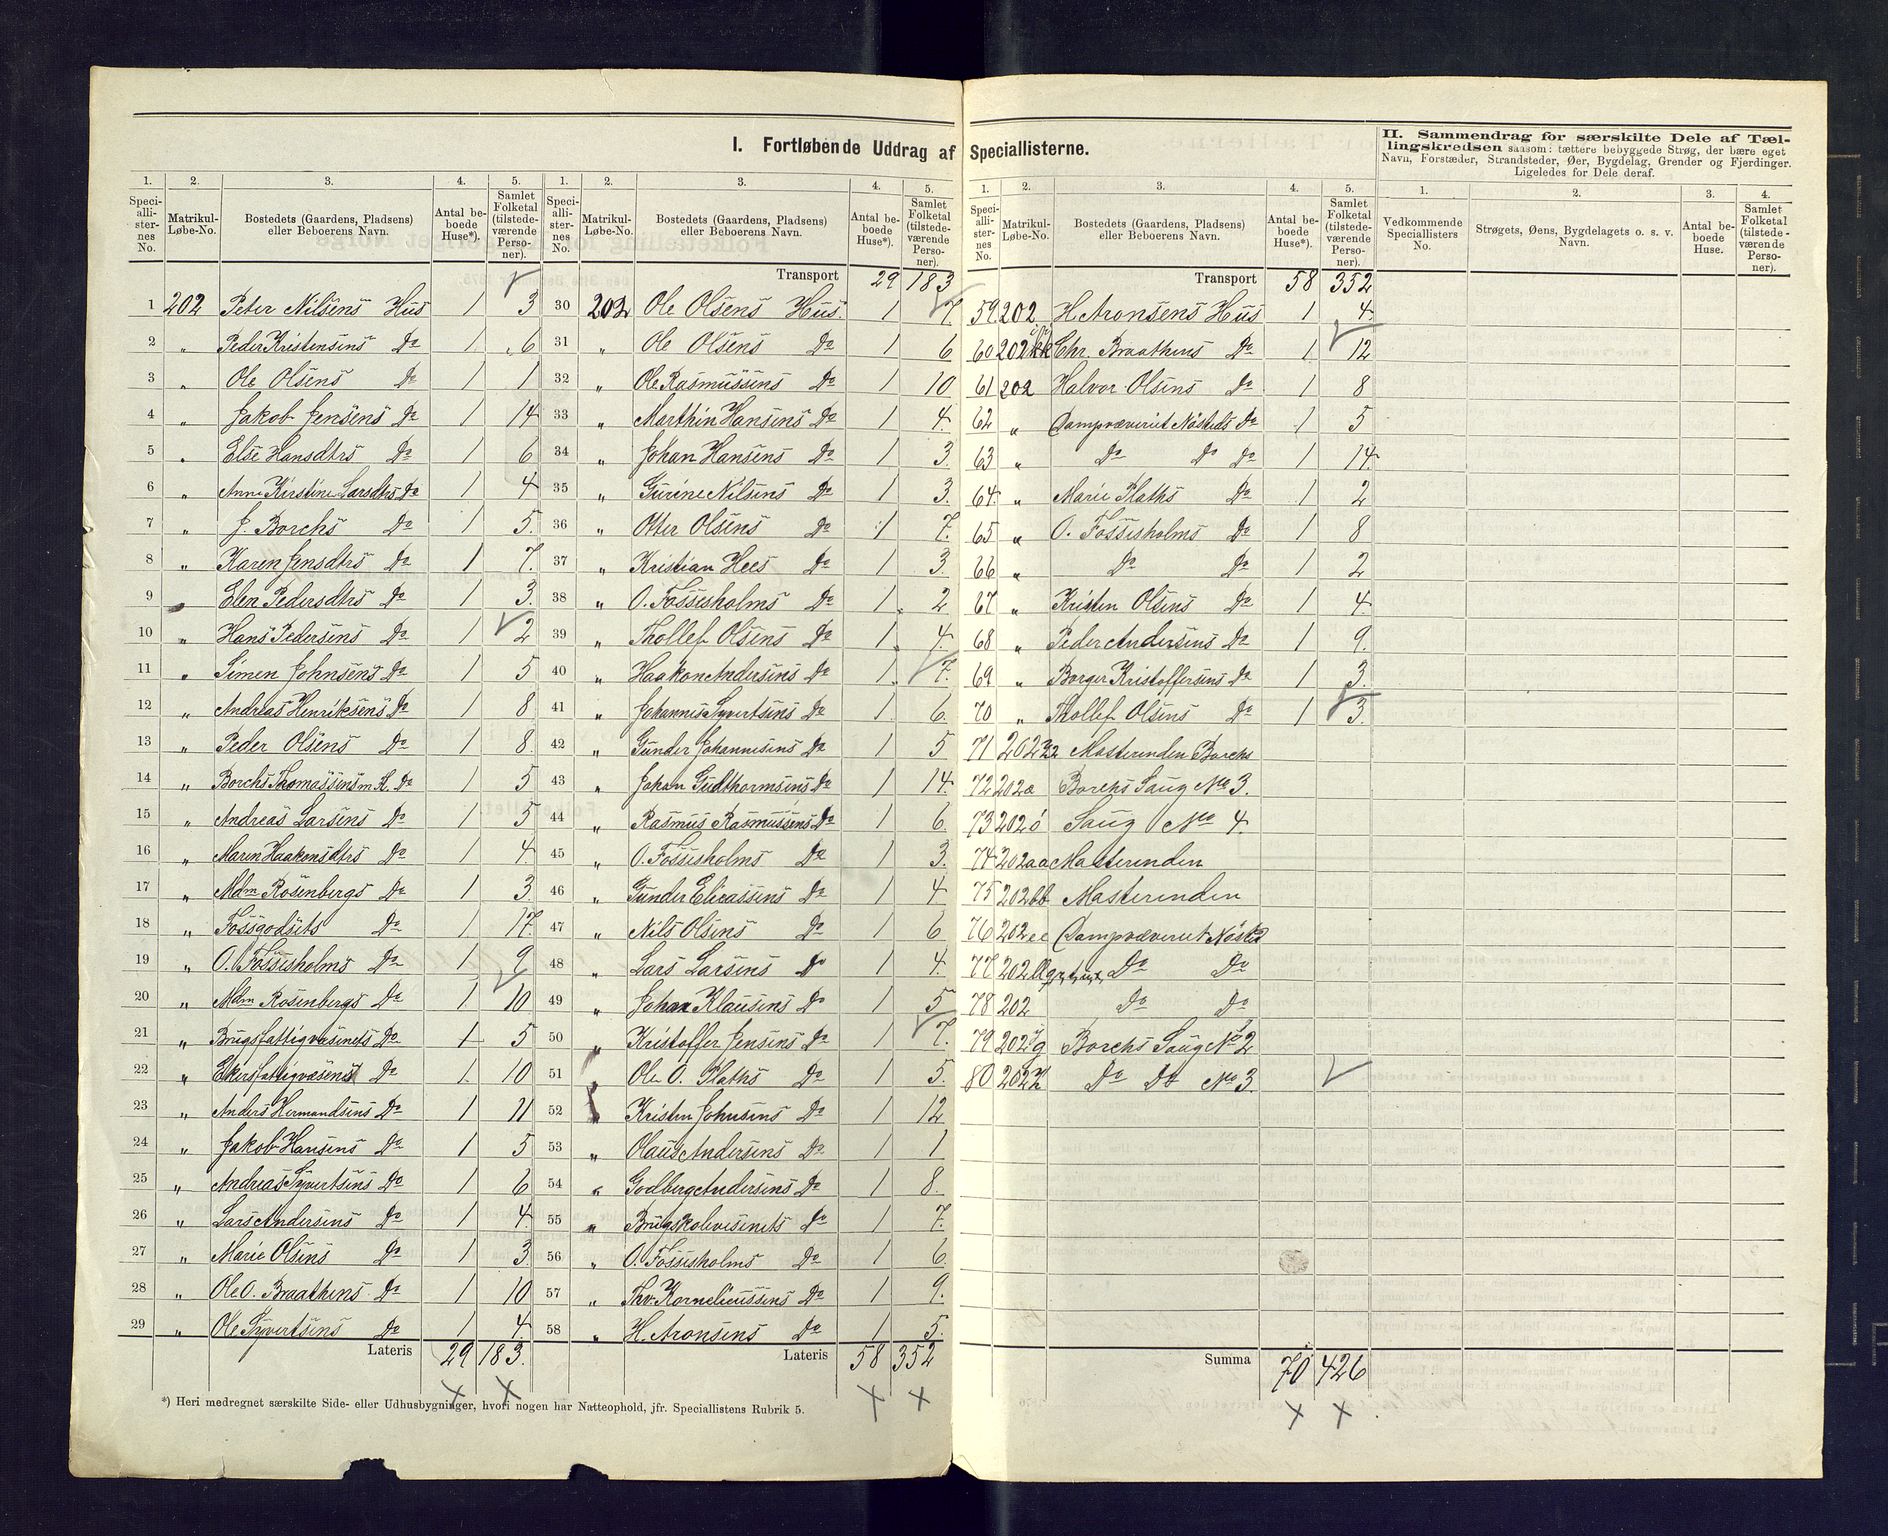 I. Fortløbende Uddrag af Speciallisterne.
II. Sammendrag for særskilte Dele af Tællingskredsen saasom: tættere bebyggede Strøg, der bære eget
Navn, Forstæder, Strandsteder, Øer, Bygdelag, Grender og Fjerdinger.
Ligeledes for Dele deraf.
1. 2. 3. 4. 5. 1. 2. 3. 4. 5.
Speciallisternes No. Matrikul-Løbe-No. Bostedets (Gaardens, Pladsens) eller Beboerens Navn. Antal beboede Huse*). Samlet Folketal (tilstedeværende Personer).
Speciallisternes No. Matrikul-Løbe-No. Bostedets (Gaardens, Pladsens) eller Beboerens Navn. Antal beboede Huse*). Samlet Folketal (tilstedeværende Personer).
1 202 Peter Nilsens Hus 1 3
2 " Peder Kristensens Do 1 6
3 " Ole Olsens Do 1 1
4 " Jakob Jensens Do 1 14
5 " Else Hansdtrs Do 1 6
6 " Anne Kirstine Larsdtrs Do 1 4
7 " J. Borchs Do 1 5.
8 " Karen Jensdtrs Do 1 7.
9 " Elen Pedersdtrs Do 1 3.
10 " Hans Pedersens Do 1 2
11 " Simen Johnsens Do 1 5
12 " Andreas Henriksens Do 1 8
13 " Peder Olsens Do 1 8.
14 " Borchs Thomassens m. fl. Do 1 5
15 " Andreas Larsens Do 1 5
16 " Maren Haakensdtrs Do 1 4
17 " Mdm Rosenbergs Do 1 3.
18 " Fossgodsets Do 1 17.
19 " O. Fossesholms Do 1 9
20 " Mdm Rosenbergs Do 1 10
21 " Brugsfattigvæsenets Do 1 5
22 " Ekersfattigvæsenets Do 1 10
23 " Anders Hermandsens Do 1 11
24 " Jakob Hansens Do 1 5
25 " Andreas Syvertsens Do 1 6
26 " Lars Andersens Do 1 4.
27 " Marie Olsens Do 1 3
28 " Ole O. Braathens Do 1 10
29 " Ole Syvertsens Do 1 4.
Lateris 29 183.
Transport 29 183
30 202 Ole Olsens Hus. 1 7.
31 " Ole Olsens Do 1 6
32 " Ole Rasmussens Do 1 10
33 " Marthin Hansens Do 1 4.
34 " Johan Hansens Do 1 3.
35 " Gurine Nilsens Do 1 3.
36 " Otter Olsens Do 1 7.
37 " Kristian Hees Do 1 3.
38 " O. Fossesholms Do 1 2
39 " Thollef Olsens Do 1 4.
40 " Haakon Andersens Do 1 7.
41 " Johannes Syvertsens Do 1 6.
42 " Gunder Johannesens Do 1 5
43 " Johan Gudthormsens Do 1 14.
44 " Rasmus Rasmussens Do 1 6.
45 " O. Fossesholms Do 1 3.
46 " Gunder Eliassens Do 1 4
47 " Nils Olsens Do 1 6
48 " Lars Larsens Do 1 4.
49 " Johan Klausens Do 1 5
50 " Kristoffer Jensens Do 1 7.
51 " Ole O. Plaths Do 1 5.
52 " Kristen Johnsens Do 1 12
53 " Olaus Andersens Do 1 1
54 " Godberg Andersens Do 1 8.
55 " Brugskolevesenets Do 1 7.
56 " O. Fossesholms Do 1 6.
57 " Thv. Kornelieussens Do 1 9.
58 " H. Aronsens Do 1 5.
Lateris 58 352
*) Heri medregnet særskilte Side- eller Udhusbygninger, hvori nogen har Natteophold, jfr. Speciallistens Rubrik 5.
1. 2. 3. 4. 5. 1. 2. 3. 4.
Speciallisternes No. Matrikul-Løbe-No. Bostedets (Gaardens, Pladsens) eller Beboerens Navn. Antal beboede Huse*). Samlet Folketal (tilstedeværende Personer).
Vedkommende Speciallisters No. Strøgets, Øens, Bygdelagets o. s. v. Navn. Antal beboede Huse. Samlet Folketal (tilstedeværende Personer).
Transport 58 352
59 202 H. Aronsens Hus 1 4.
60 202 kk Chr. Braathens Do 1 12
61 202 Halvor Olsens Do 1 8
62 " Dampvæveriet Nøsteds Do 1 5
63 " Do Do Do 1 14.
64. " Marie Plaths Do 1 2
65 " O. Fossesholms Do 1 8
66 " Do Do 1 2
67 " Kristen Olsens Do 1 4
68 " Peder Andersens Do 1 9.
69 " Borger Kristoffersens Do 1 3.
70 " Thollef Olsens Do 1 3.
71 202 Masterenden Borchs
72 202æ Borchs Saug No 3.
73 202ø Saug No 4.
74 202aa Masterenden
75 202bb Masterenden
76 202ee Dampvæveriet Nøsted
77 202 Do Do
78 202 Do Do
79 202 Borchs Saug No 2
80 202 Do Do No 3.
Summa 70 426